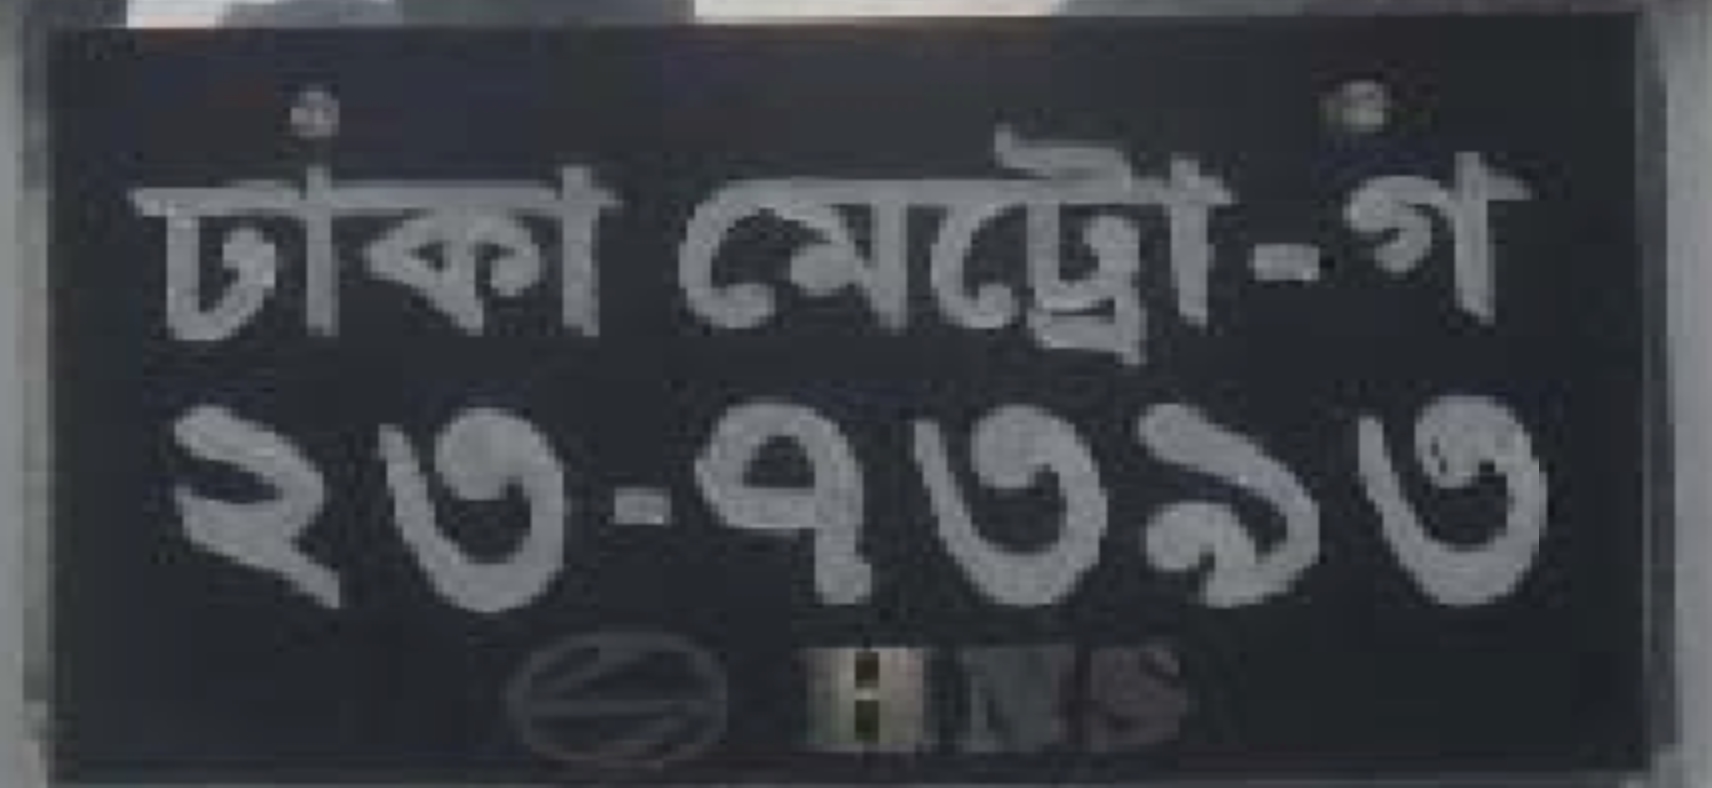 ঢাকা মেট্রো-গ
২৩-৭৩১৩
HNS